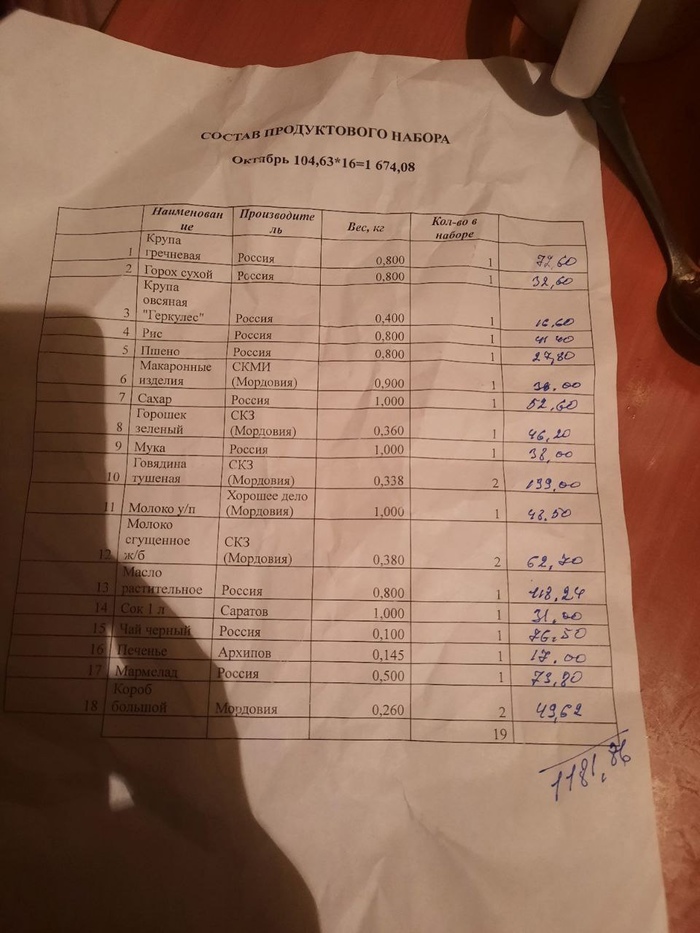 СОСТАВ ПРОДУКТОВОГО НАБОРА
Октябрь 104,63*16=1 674,08
Наименование Производитель Вес, кг Кол-во в наборе
1 Крупа гречневая Россия 0,800 1 72,60
2 Горох сухой Россия 0,800 1 32,60
3 Крупа овсяная "Геркулес" Россия 0,400 1 16.60
4 Рис Россия 0,800 1 41 40
5 Пшено Россия 0,800 1 27,80
6 Макаронные изделия СКМИ (Мордовия) 0,900 1
7 Сахар Россия 1,000 1 52,60
8 Горошек зеленый СКЗ (Мордовия) 0,360 1 46,20
9 Мука Россия 1,000 1 38,00
10 Говядина тушеная СКЗ (Мордовия) 0,338 2 199,00
11 Молоко у/п Хорошее дело (Мордовия) 1,000 1 48.50
12 Молоко сгущенное ж/б СКЗ (Мордовия) 0,380 2 62,70
13 Масло растительное Россия 0,800 1 118,24
14 Сок 1 л Саратов 1,000 1 31,00
15 Чай черный Россия 0,100 1 76.50
16 Печенье Архипов 0,145 1 17.00
17 Мармелад Россия 0,500 1 73,80
18 Короб большой Мордовия 0,260 2 49,62
19
1181,86